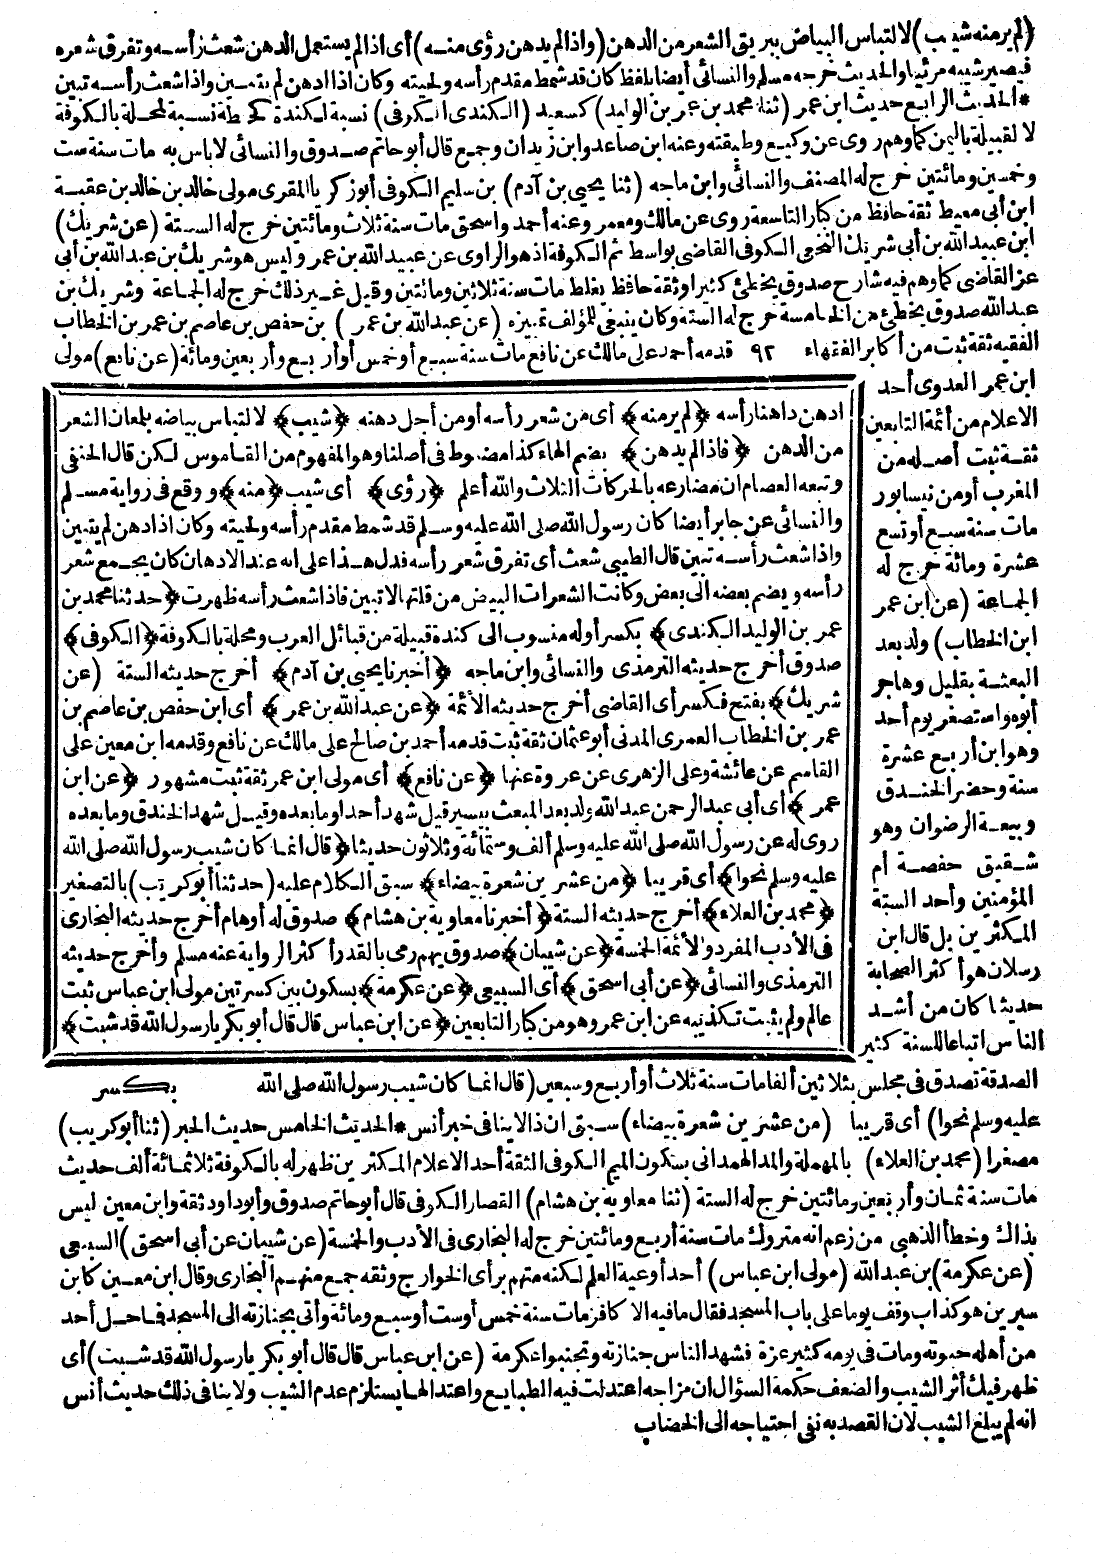 (لم ير منه شيب) لالتباس البياض ببريق الشعر من الدهن (واذا لم يدهن رؤى منه) أى اذا لم يستعمل الدهن شعث رأسه وتفرق شعره
فيصير شيبه مرئيا والحديث خرجه مسلم والنسائى أيضا بلفظ كان قد شمط مقدم رأسه ولحيته وكان اذا ادهن لم يتبين واذا شعث رأسه تبين
* الحديث الرابع حديث ابن عمر (ثنا محمد بن عمر بن الوليد) كسعيد (الكندى الكوفى) نسبة لكندة كحطة نسبة لمحلة بالكوفة
لا لقبيلة باليمن كما وهم روى عن وكيع وطبقته وعنه ابن صاعد وابن زيدان وجمع قال أبو حاتم صدوق والنسائى لا باس به مات سنة ست
وخمسين ومائتين خرج له المصنف والنسائى وابن ماجه (ثنا يحيى بن آدم) بن سليم الكوفى أبو زكريا المقرى مولى خالد بن خالد بن عقبة
ابن أبى معيط ثقة حافظ من كبار التاسعة روى عن مالك ومعمر وعنه أحمد واسحق مات سنة ثلاث ومائتين خرج له الستة (عن شريك)
ابن عبيد الله بن أبى شريك النخعى الكوفى القاضى بواسط ثم الكوفة اذ هو الراوى عن عبيد الله بن عمر وليس هو شريك بن عبد الله بن أبى
عز القاضى كما وهم فيه شارح صدوق يخطئ كثيرا وثقة حافظ يغلط مات سنة ثلاثين ومائتين وقيل غير ذلك خرج له الجماعة وشريك بن
عبد الله صدوق يخطئ من الخامسة خرج له الستة وكان ينبغى للمؤلف تمييزه (عن عبد الله بن عمر) بن حفص بن عاصم بن عمر بن الخطاب
الفقيه ثقة ثبت من أكابر الفقهاء ٩٢ قدمه أحمد على مالك عن نافع مات سنة سبع أو خمس أو أربع وأربعين ومائة (عن نافع) مولى
ابن عمر العدوى أحد
الاعلام من أئمة التابعين
ثقة ثبت أصله من
المغرب أو من نيسابور
مات سنة سبع أو تسع
عشرة ومائة خرج له
الجماعة (عن ابن عمر
ابن الخطاب) ولد بعد
البعثة بقليل وهاجر
أبوه واستصغر يوم أحد
وهو ابن أربع عشرة
سنة وحضر الخندق
وبيعة الرضوان وهو
شقيق حفصة أم
المؤمنين وأحد الستة
المكثرين بل قال ابن
رسلان هو أكثر الصحابة
حديثا كان من أشد
الناس اتباعا للسنة كثير
ادهن داهنا رأسه ﴿لم ير منه﴾ أى من شعر رأسه أو من أجل دهنه ﴿شيب﴾ لالتباس بياضه بلمعان الشعر
من الدهن ﴿فاذا لم يدهن﴾ بضم الهاء كذا مضبوط فى أصلنا وهو المفهوم من القاموس لكن قال الحنفى
وتبعه العصام ان مضارعه بالحركات الثلاث والله أعلم ﴿رؤى﴾ أى شيب ﴿منه﴾ ووقع فى رواية مسلم
والنسائى عن جابر أيضا كان رسول الله صلى الله عليه وسلم قد شمط مقدم رأسه ولحيته وكان اذا ادهن لم يتبين
واذا شعث رأسه تبين قال الطيبى شعث أى تفرق شعر رأسه فدل هذا على انه عند الادهان كان يجمع شعر
رأسه ويضم بعضه الى بعض وكانت الشعرات البيض من قلتها لا تبين فاذا شعث رأسه ظهرت ﴿حدثنا محمد بن
عمر بن الوليد الكندى﴾ بكسر أوله منسوب الى كندة قبيلة من قبائل العرب ومحلة بالكوفة ﴿الكوفى﴾
صدوق أخرج حديثه الترمذى والنسائى وابن ماجه ﴿أخبرنا يحيى بن آدم﴾ أخرج حديثه الستة (عن
شريك﴾ بفتح فكسر أى القاضى أخرج حديثه الأئمة ﴿عن عبد الله بن عمر﴾ أى ابن حفص بن عاصم بن
عمر بن الخطاب العمرى المدنى أبو عثمان ثقة ثبت قدمه أحمد بن صالح على مالك عن نافع وقدمه ابن معين على
القاسم عن عائشة وعلى الزهرى عن عروة عنها ﴿عن نافع﴾ أى مولى ابن عمر ثقة ثبت مشهور ﴿عن ابن
عمر﴾ أى أبى عبد الرحمن عبد الله ولد بعد المبعث بيسير قيل شهد أحدا وما بعده وقيل شهد الخندق وما بعده
روى له عن رسول الله صلى الله عليه وسلم ألف وستمائة وثلاثون حديثا ﴿قال انما كان شيب رسول الله صلى الله
عليه وسلم نحوا﴾ أى قريبا ﴿من عشرين شعرة بيضاء﴾ سبق الكلام عليه (حدثنا أبو كريب) بالتصغير
﴿محمد بن العلاء﴾ أخرج حديثه الستة ﴿أخبرنا معاوية بن هشام﴾ صدوق له أوهام أخرج حديثه البخارى
فى الأدب المفرد والأئمة الخمسة ﴿عن شيبان﴾ صدوق يهم رمى بالقدر أكثر الرواية عنه مسلم وأخرج حديثه
الترمذى والنسائى ﴿عن أبى اسحق﴾ أى السبيعى ﴿عن عكرمة﴾ بسكون بين كسرتين مولى ابن عباس ثبت
عالم ولم يثبت تكذيبه عن ابن عمر وهو من كبار التابعين ﴿عن ابن عباس قال قال أبو بكر يا رسول الله قد شبت﴾
الصدقة تصدق فى مجلس بثلاثين ألفا مات سنة ثلاث أو أربع وسبعين (قال انما كان شيب رسول الله صلى الله بكسر
عليه وسلم نحوا) أى قريبا (من عشرين شعرة بيضاء) سبق ان ذا لا ينافى خبر أنس * الحديث الخامس حديث الحبر (ثنا أبو كريب)
مصغرا (محمد بن العلاء) بالمهملة والمد الهمدانى بسكون الميم الكوفى الثقة أحد الاعلام المكثرين ظهر له بالكوفة ثلاثمائة ألف حديث
مات سنة ثمان وأربعين ومائتين خرج له الستة (ثنا معاوية بن هشام) القصار الكوفى قال أبو حاتم صدوق وأبو داود ثقة وابن معين ليس
بذاك وخطأ الذهبى من زعم انه متروك مات سنة أربع ومائتين خرج له البخارى فى الأدب والخمسة (عن شيبان عن أبى اسحق) السبيعى
(عن عكرمة) بن عبد الله (مولى ابن عباس) أحد أوعية العلم لكنه متهم برأى الخوارج وثقه جمع منهم البخارى وقال ابن معين كابن
سيرين هو كذاب وقف يوما على باب المسجد فقال ما فيه الا كافر مات سنة خمس أو ست أو سبع ومائة وأتى بجنازته الى المسجد فما حل أحد
من أهله حبوته ومات فى يومه كثير عزة فشهد الناس جنازته وتجنبوا عكرمة (عن ابن عباس قال قال أبو بكر يا رسول الله قد شبت) أى
ظهر فيك أثر الشيب والضعف حكمة السؤال ان مزاجه اعتدلت فيه الطبايع واعتدالها يستلزم عدم الشيب ولا ينافى ذلك حديث أنس
انه لم يبلغ الشيب لان القصد به نفى احتياجه الى الخضاب